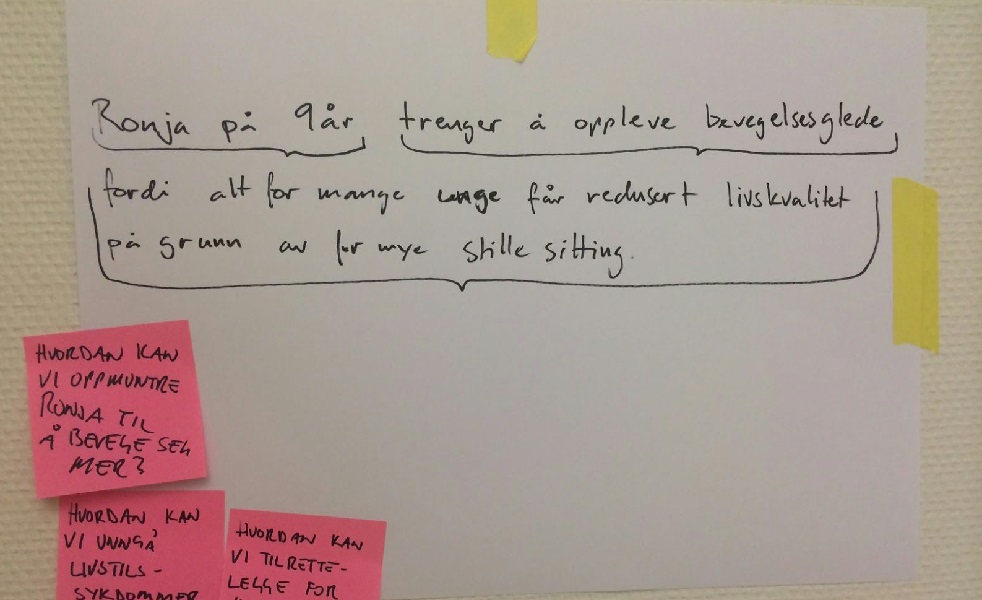 Ronja på 9 år trenger å oppleve bevegelsesglede
fordi alt for mange unge får redusert livskvalitet
på grunn av for mye stille sitting.
HVORDAN KAN
VI OPPMUNTRE
RONJA TIL
Å BEVEGE SEG
MER?
HVORDAN KAN
VI UNNGÅ
LIVSTILS-
SYKDOMMER
HVORDAN KAN
VI TILRETTE-
LEGGE FOR